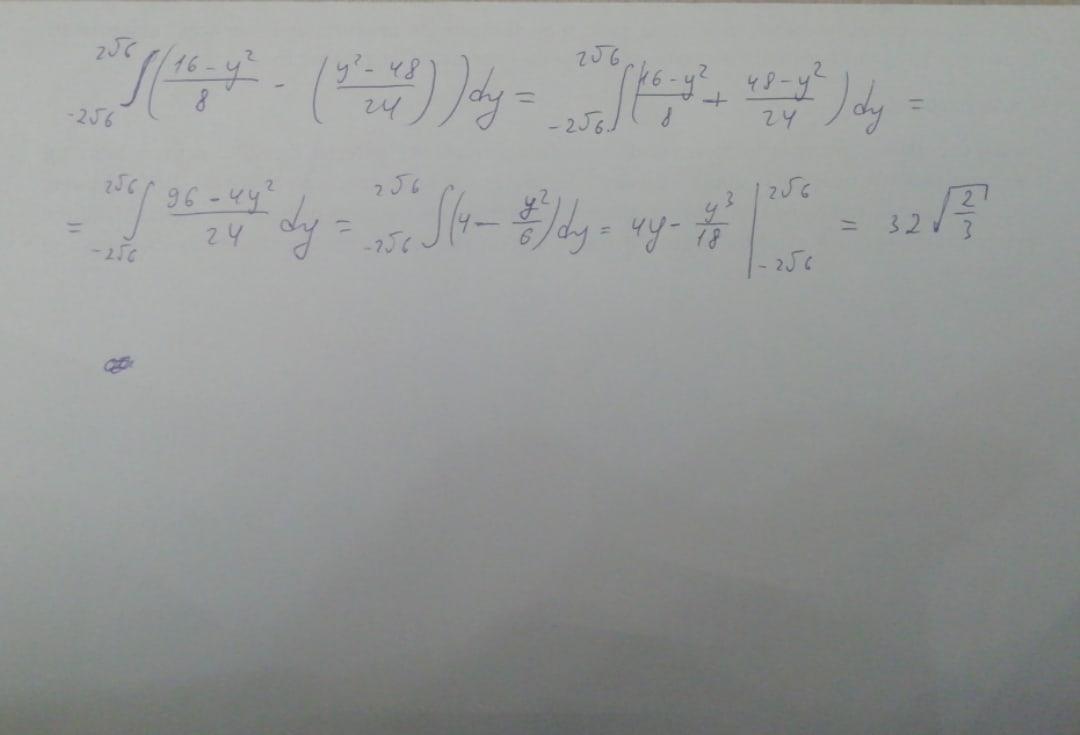 ∫_{-2√6}^{2√6} ( (16-y²)/8 - ( (y²-48)/24 ) ) dy = ∫_{-2√6}^{2√6} ( (16-y²)/8 + (48-y²)/24 ) dy =
= ∫_{-2√6}^{2√6} (96-4y²)/24 dy = ∫_{-2√6}^{2√6} (4 - y²/6) dy = 4y - y³/18 |_{-2√6}^{2√6} = 32 √(2/3)